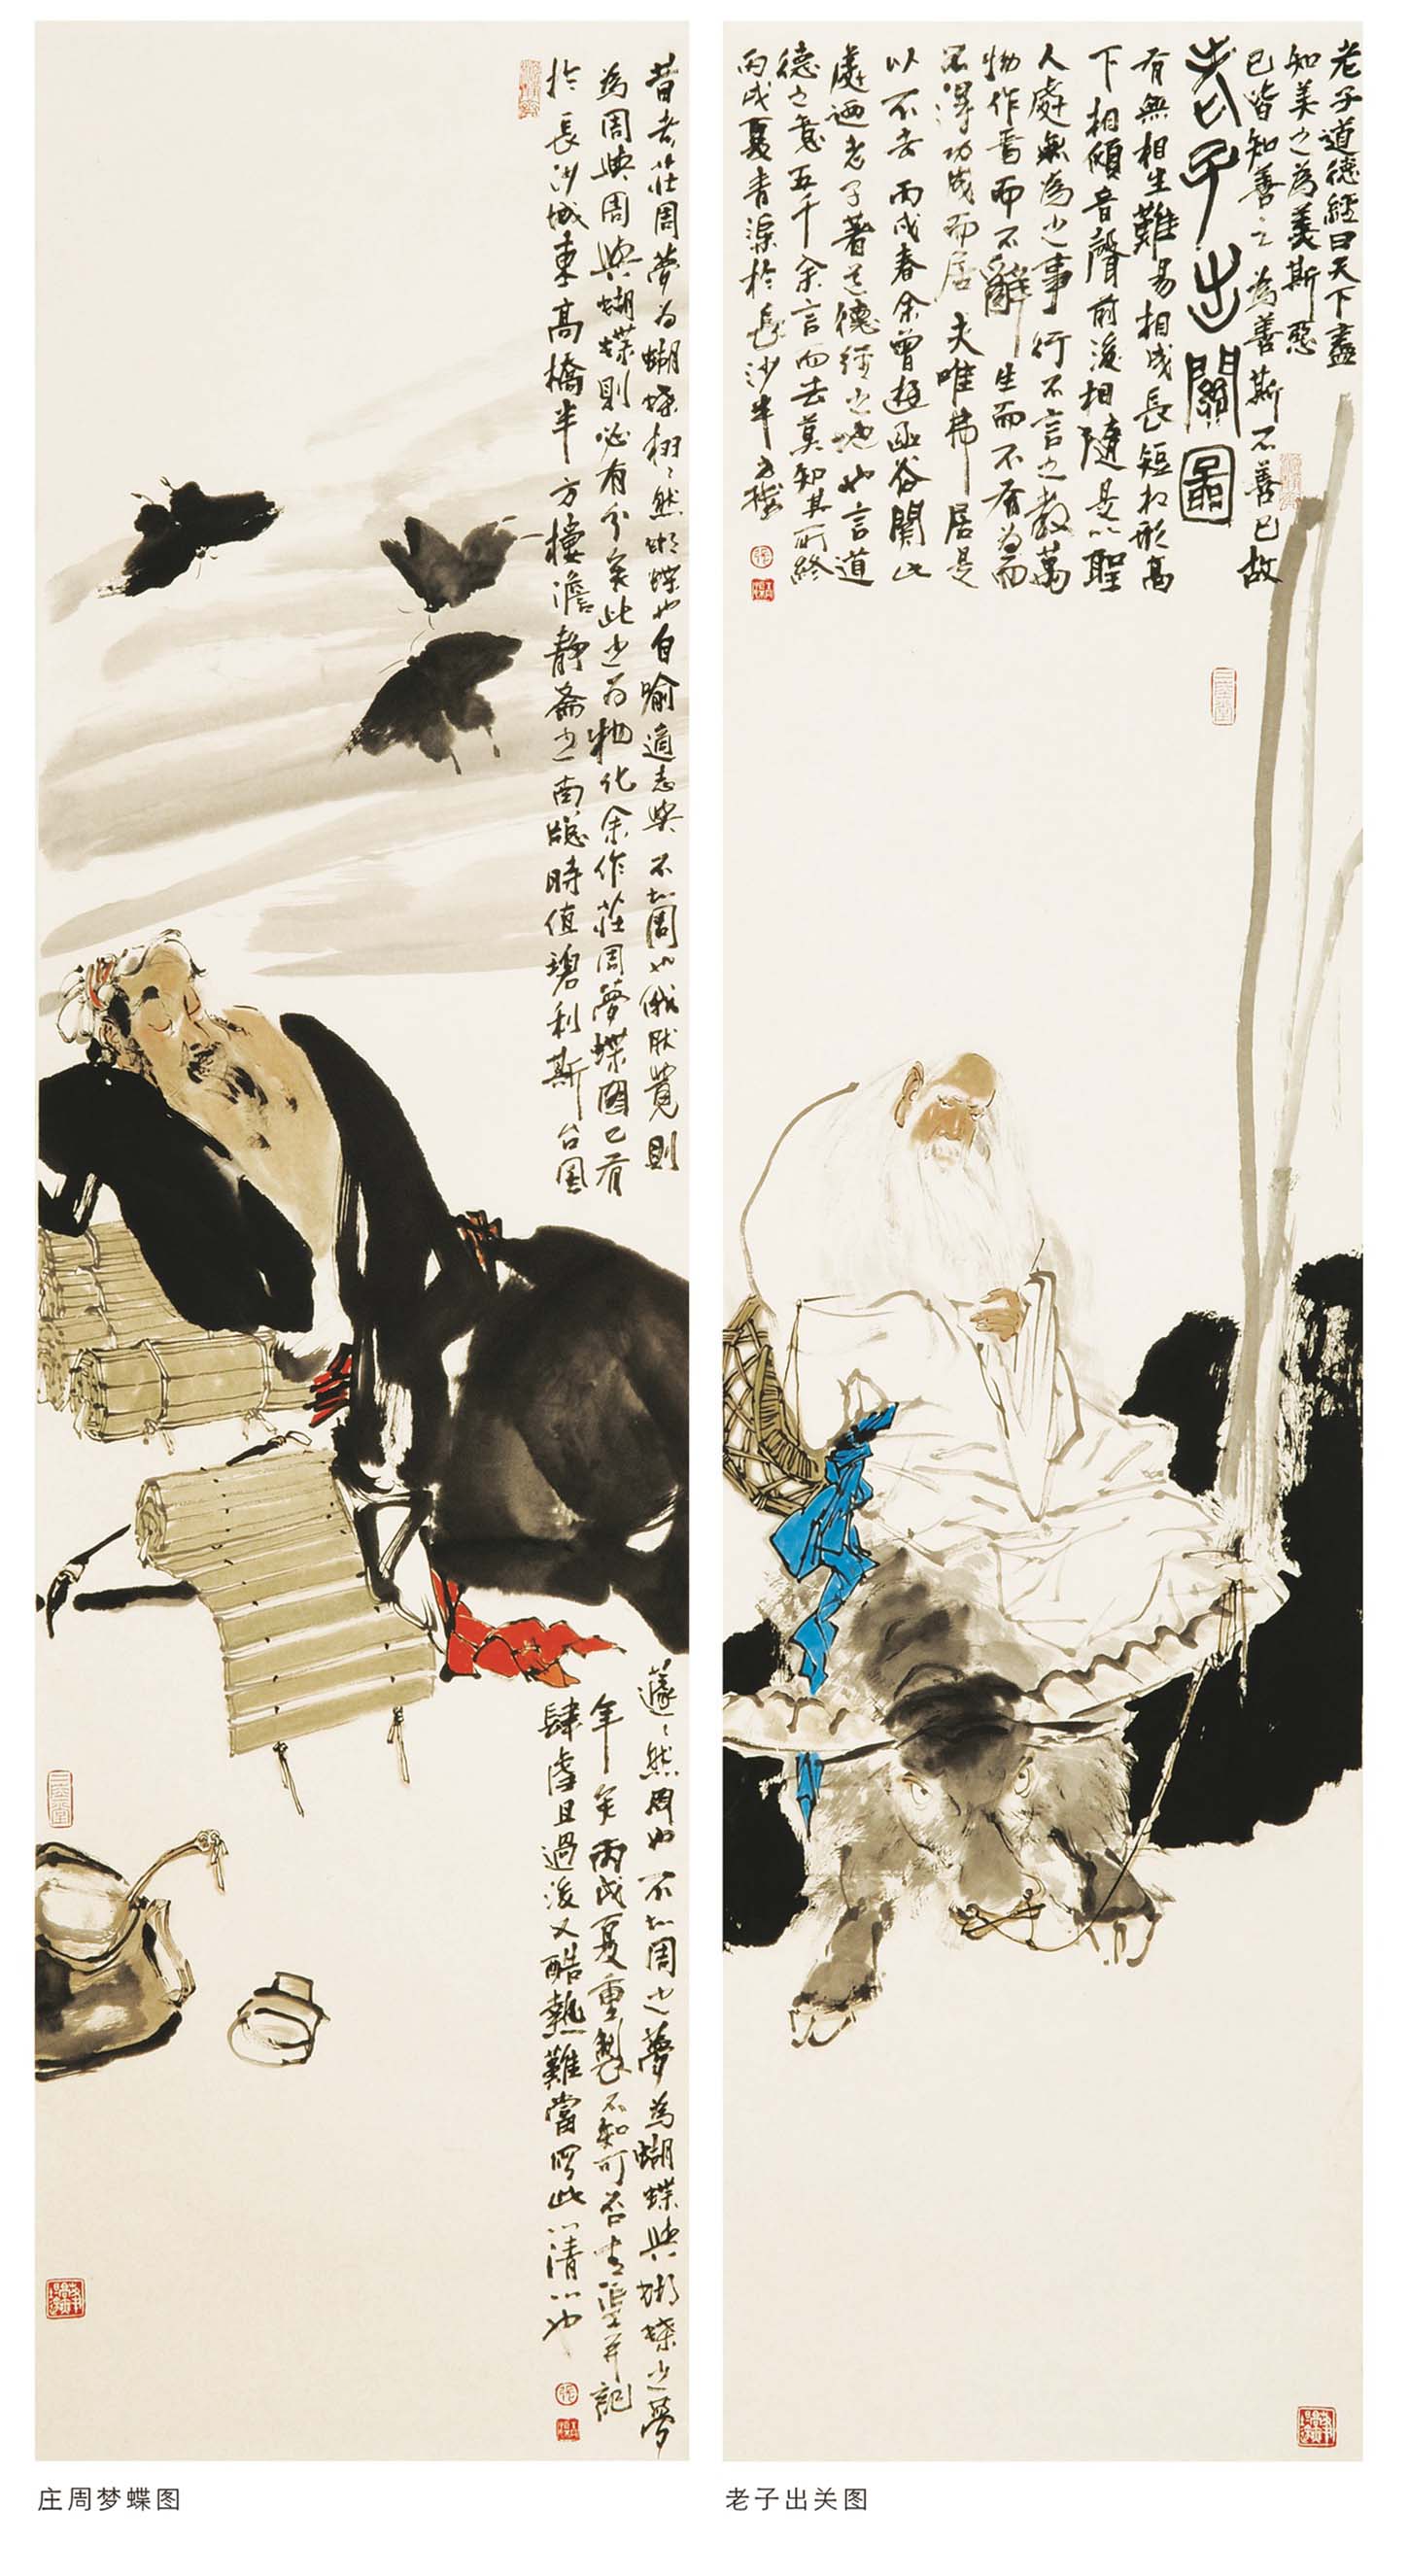 老子道德經曰天下盡
知美之為美斯惡
已皆知善之為善斯不善已故
老子出關圖
有無相生難易相成長短相形高
下相傾音聲前後相隨是以聖
人處無為之事行不言之教萬
物作焉而不辭生而不有為而
不得功成而居夫唯弗居是
以不去丙戌春余曾遊函谷關此
處迺老子著道德經之地也言道
德之意五千余言而去莫知其所終
丙戌夏青渠於長沙半方樓
昔者莊周夢為蝴蝶栩〻然蝴蝶也自喻適志與不知周也俄然覺則蘧〻然周也不知周之夢為蝴蝶與蝴蝶之夢
為周與周與蝴蝶則必有分矣此之為物化余作莊周夢蝶圖已有年矣丙戌夏重製不知可否青渠并記
於長沙城東高橋半方樓澹靜齋之南窗時值碧利斯台風肆虐且過後又酷熱難當此以清心也
庄周梦蝶图
老子出关图